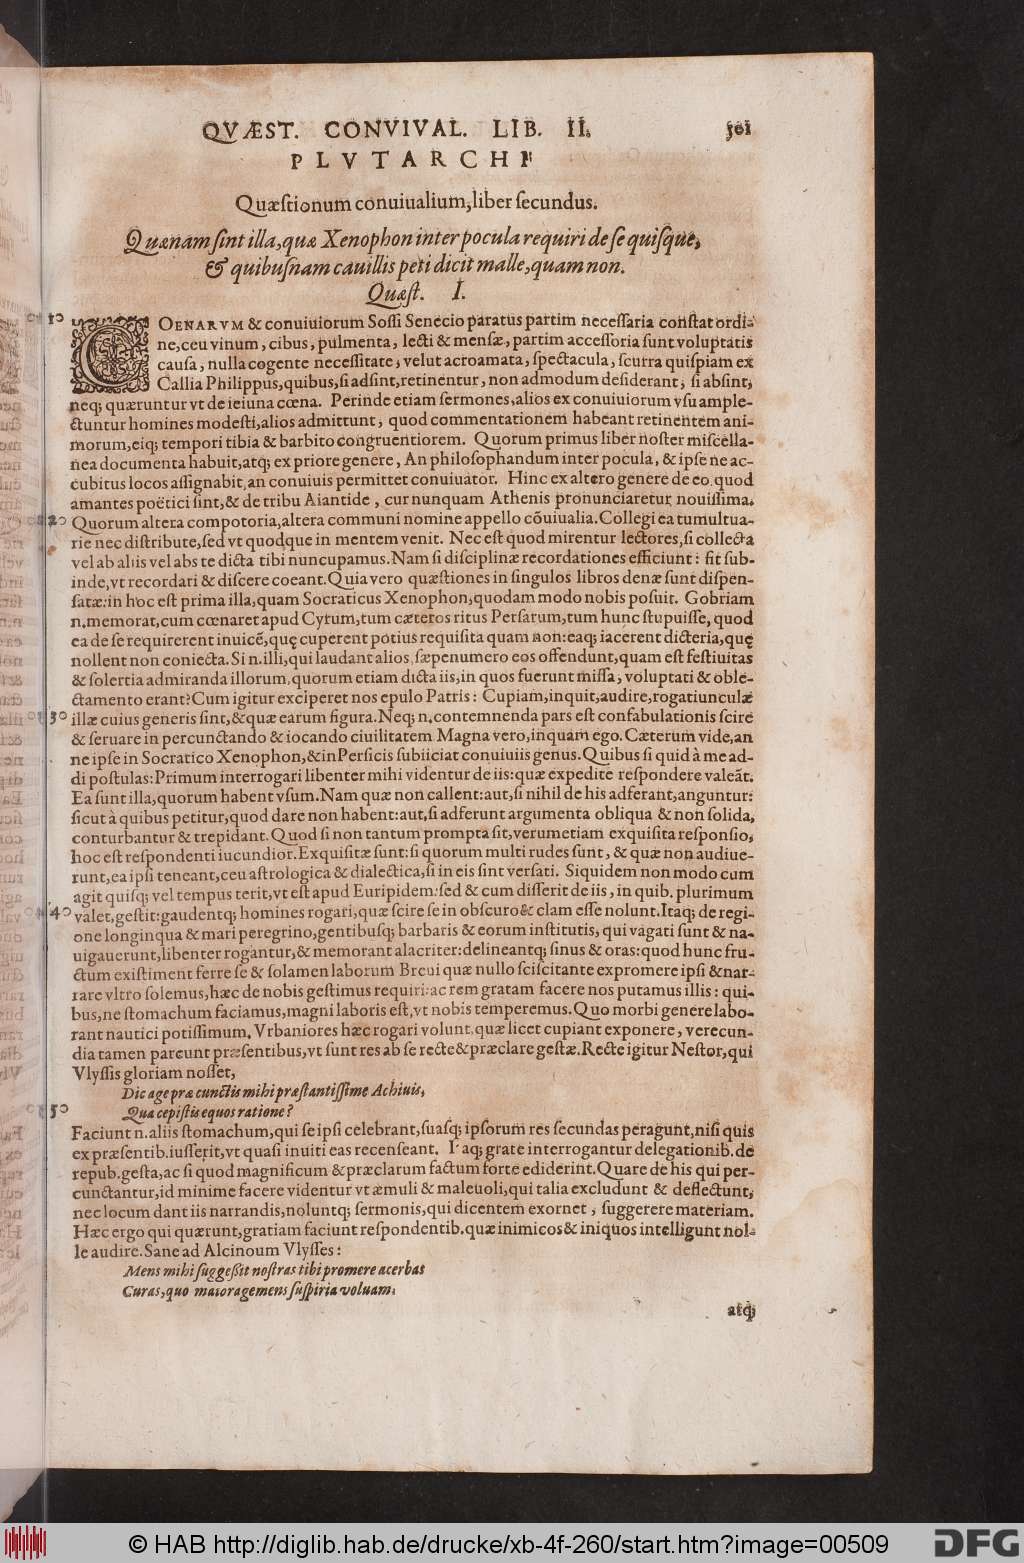 QVÆST. CONVIVAL. LIB. II. 501
PLVTARCHI
Quæstionum conuiualium, liber secundus.
Quænam sint illa, quæ Xenophon inter pocula requiri de se quisque,
& quibusnam cauillis peti dicit malle, quam non.
Quæst. I.
10 COENARVM & conuiuiorum Sossi Senecio paratus partim necessaria constat ordi-
ne, ceu vinum, cibus, pulmenta, lecti & mensæ, partim accessoria sunt voluptatis
causa, nulla cogente necessitate, velut acroamata, spectacula, scurra quispiam ex
Callia Philippus, quibus, si adsint, retinentur, non admodum desiderant, si absint,
neq; quæruntur vt de ieiuna cœna. Perinde etiam sermones, alios ex conuiuiorum vsu ample-
ctuntur homines modesti, alios admittunt, quod commentationem habeant retinentem ani-
morum, eiq; tempori tibia & barbito congruentiorem. Quorum primus liber noster miscella-
nea documenta habuit, atq; ex priore genere, An philosophandum inter pocula, & ipse ne ac-
cubitus locos assignabit, an conuiuis permittet conuiuator. Hinc ex altero genere de eo, quod
amantes poëtici sint, & de tribu Aiantide, cur nunquam Athenis pronunciaretur nouissima.
20 Quorum altera compotoria, altera communi nomine appello cõuiualia. Collegi ea tumultua-
rie nec distribute, sed vt quodque in mentem venit. Nec est quod mirentur lectores, si collecta
vel ab aliis vel abs te dicta tibi nuncupamus. Nam si disciplinæ recordationes efficiunt: fit sub-
inde, vt recordari & discere coeant. Quia vero quæstiones in singulos libros denæ sunt dispen-
satæ: in hoc est prima illa, quam Socraticus Xenophon, quodam modo nobis posuit. Gobriam
n. memorat, cum cœnaret apud Cyrum, tum cæteros ritus Persarum, tum hunc stupuisse, quod
ea de se requirerent inuicē, quę cuperent potius requisita quam non: eaq; iacerent dicteria, quę
nollent non coniecta. Si n. illi, qui laudant alios, sæpenumero eos offendunt, quam est festiuitas
& solertia admiranda illorum, quorum etiam dicta iis, in quos fuerunt missa, voluptati & oble-
ctamento erant? Cum igitur exciperet nos epulo Patris: Cupiam, inquit, audire, rogatiunculæ
30 illæ cuius generis sint, & quæ earum figura. Neq; n. contemnenda pars est confabulationis scire
& seruare in percunctando & iocando ciuilitatem Magna vero, inquam ego. Cæterum vide, an
ne ipse in Socratico Xenophon, & in Persicis subiiciat conuiuiis genus. Quibus si quid à me ad-
di postulas: Primum interrogari libenter mihi videntur de iis: quæ expedite respondere valeãt.
Ea sunt illa, quorum habent vsum. Nam quæ non callent: aut, si nihil de his adferant, anguntur:
sicut à quibus petitur, quod dare non habent: aut, si adferunt argumenta obliqua & non solida,
conturbantur & trepidant. Quod si non tantum prompta sit, verumetiam exquisita responsio,
hoc est respondenti iucundior. Exquisitæ sunt: si quorum multi rudes sunt, & quæ non audiue-
runt, ea ipsi teneant, ceu astrologica & dialectica, si in eis sint versati. Siquidem non modo cum
agit quisq; vel tempus terit, vt est apud Euripidem: sed & cum disserit de iis, in quib. plurimum
40 valet, gestit: gaudentq; homines rogari, quæ scire se in obscuro & clam esse nolunt. Itaq; de regi-
one longinqua & mari peregrino, gentibusq; barbaris & eorum institutis, qui vagati sunt & na-
uigauerunt, libenter rogantur, & memorant alacriter: delineantq; sinus & oras: quod hunc fru-
ctum existiment ferre se & solamen laborum Breui quæ nullo sciscitante expromere ipsi & nar-
rare vltro solemus, hæc de nobis gestimus requiri: ac rem gratam facere nos putamus illis: qui-
bus, ne stomachum faciamus, magni laboris est, vt nobis temperemus. Quo morbi genere labo-
rant nautici potissimum. Vrbaniores hæc rogari volunt, quæ licet cupiant exponere, verecun-
dia tamen parcunt præsentibus, vt sunt res ab se recte & præclare gestæ. Recte igitur Nestor, qui
Vlyssis gloriam nosset,
Dic age præ cunctis mihi præstantissime Achiuis,
50 Qua cepistis equos ratione?
Faciunt n. aliis stomachum, qui se ipsi celebrant, suasq; ipsorum res secundas peragunt, nisi quis
ex præsentib. iusserit, vt quasi inuiti eas recenseant. Itaq; grate interrogantur delegationib. de
repub. gesta, ac si quod magnificum & præclarum factum forte ediderint. Quare de his qui per-
cunctantur, id minime facere videntur vt æmuli & maleuoli, qui talia excludunt & deflectunt,
nec locum dant iis narrandis, noluntq; sermonis, qui dicentem exornet, suggerere materiam.
Hæc ergo qui quærunt, gratiam faciunt respondentib. quæ inimicos & iniquos intelligunt nol-
le audire. Sane ad Alcinoum Vlysses:
Mens mihi suggeßit nostras tibi promere acerbas
Curas, quo maiora gemens suspiria voluam.
atq;
© HAB http://diglib.hab.de/drucke/xb-4f-260/start.htm?image=00509
DFG